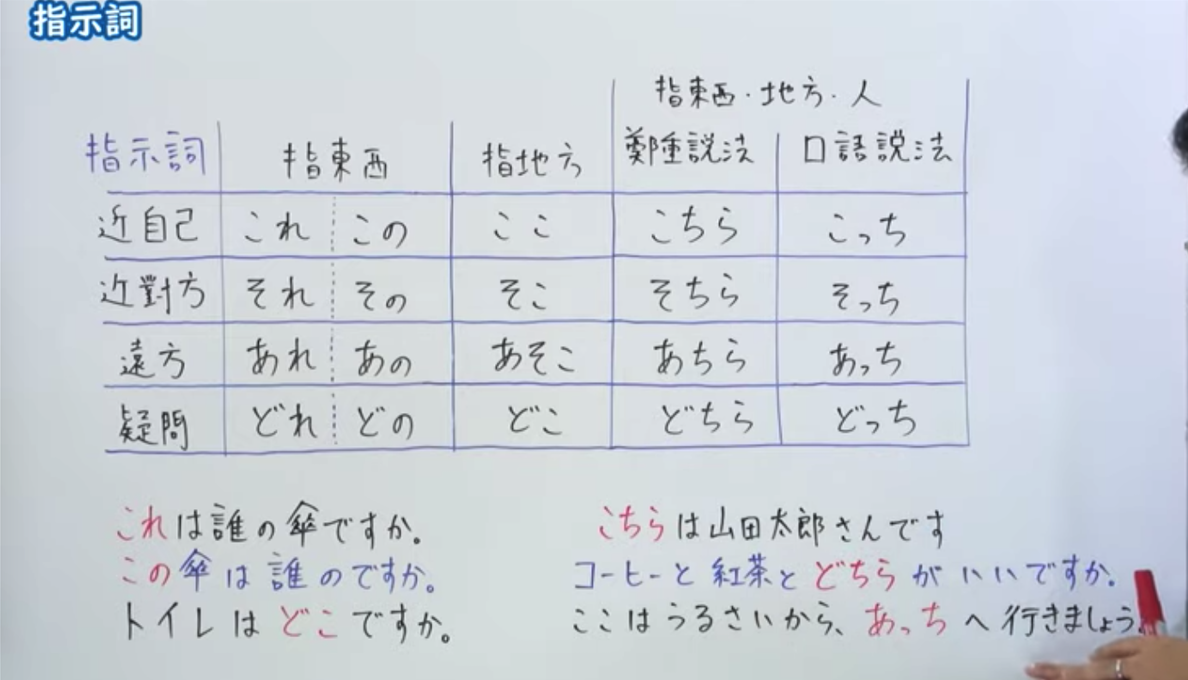 指示詞
指東西·地方·人
指示詞 指東西 指地方 鄭重説法 口語説法
近自己 これ この ここ こちら こっち
近對方 それ その そこ そちら そっち
遠方 あれ あの あそこ あちら あっち
疑問 どれ どの どこ どちら どっち
これは誰の傘ですか。
この傘は誰のですか。
トイレはどこですか。
こちらは山田太郎さんです
コーヒーと紅茶とどちらがいいですか.
ここはうるさいから、あっちへ行きましょう